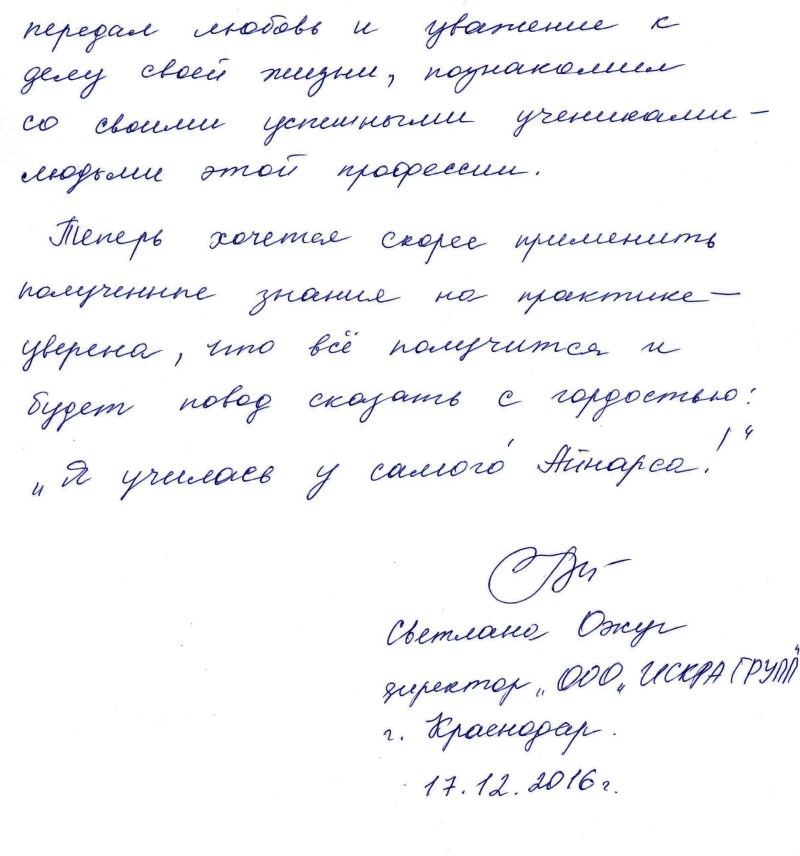 передал любовь и уважение к
делу своей жизни, познакомил
со своими успешными учениками –
людьми этой профессии.
Теперь хочется скорее применить
полученные знания на практике –
уверена, что всё получится и
будет повод сказать с гордостью:
„Я училась у самого́ Айнарса!“
Светлана Ожуг
директор „ООО „ИСКРА ГРУПП“
г. Краснодар.
17.12.2016г.